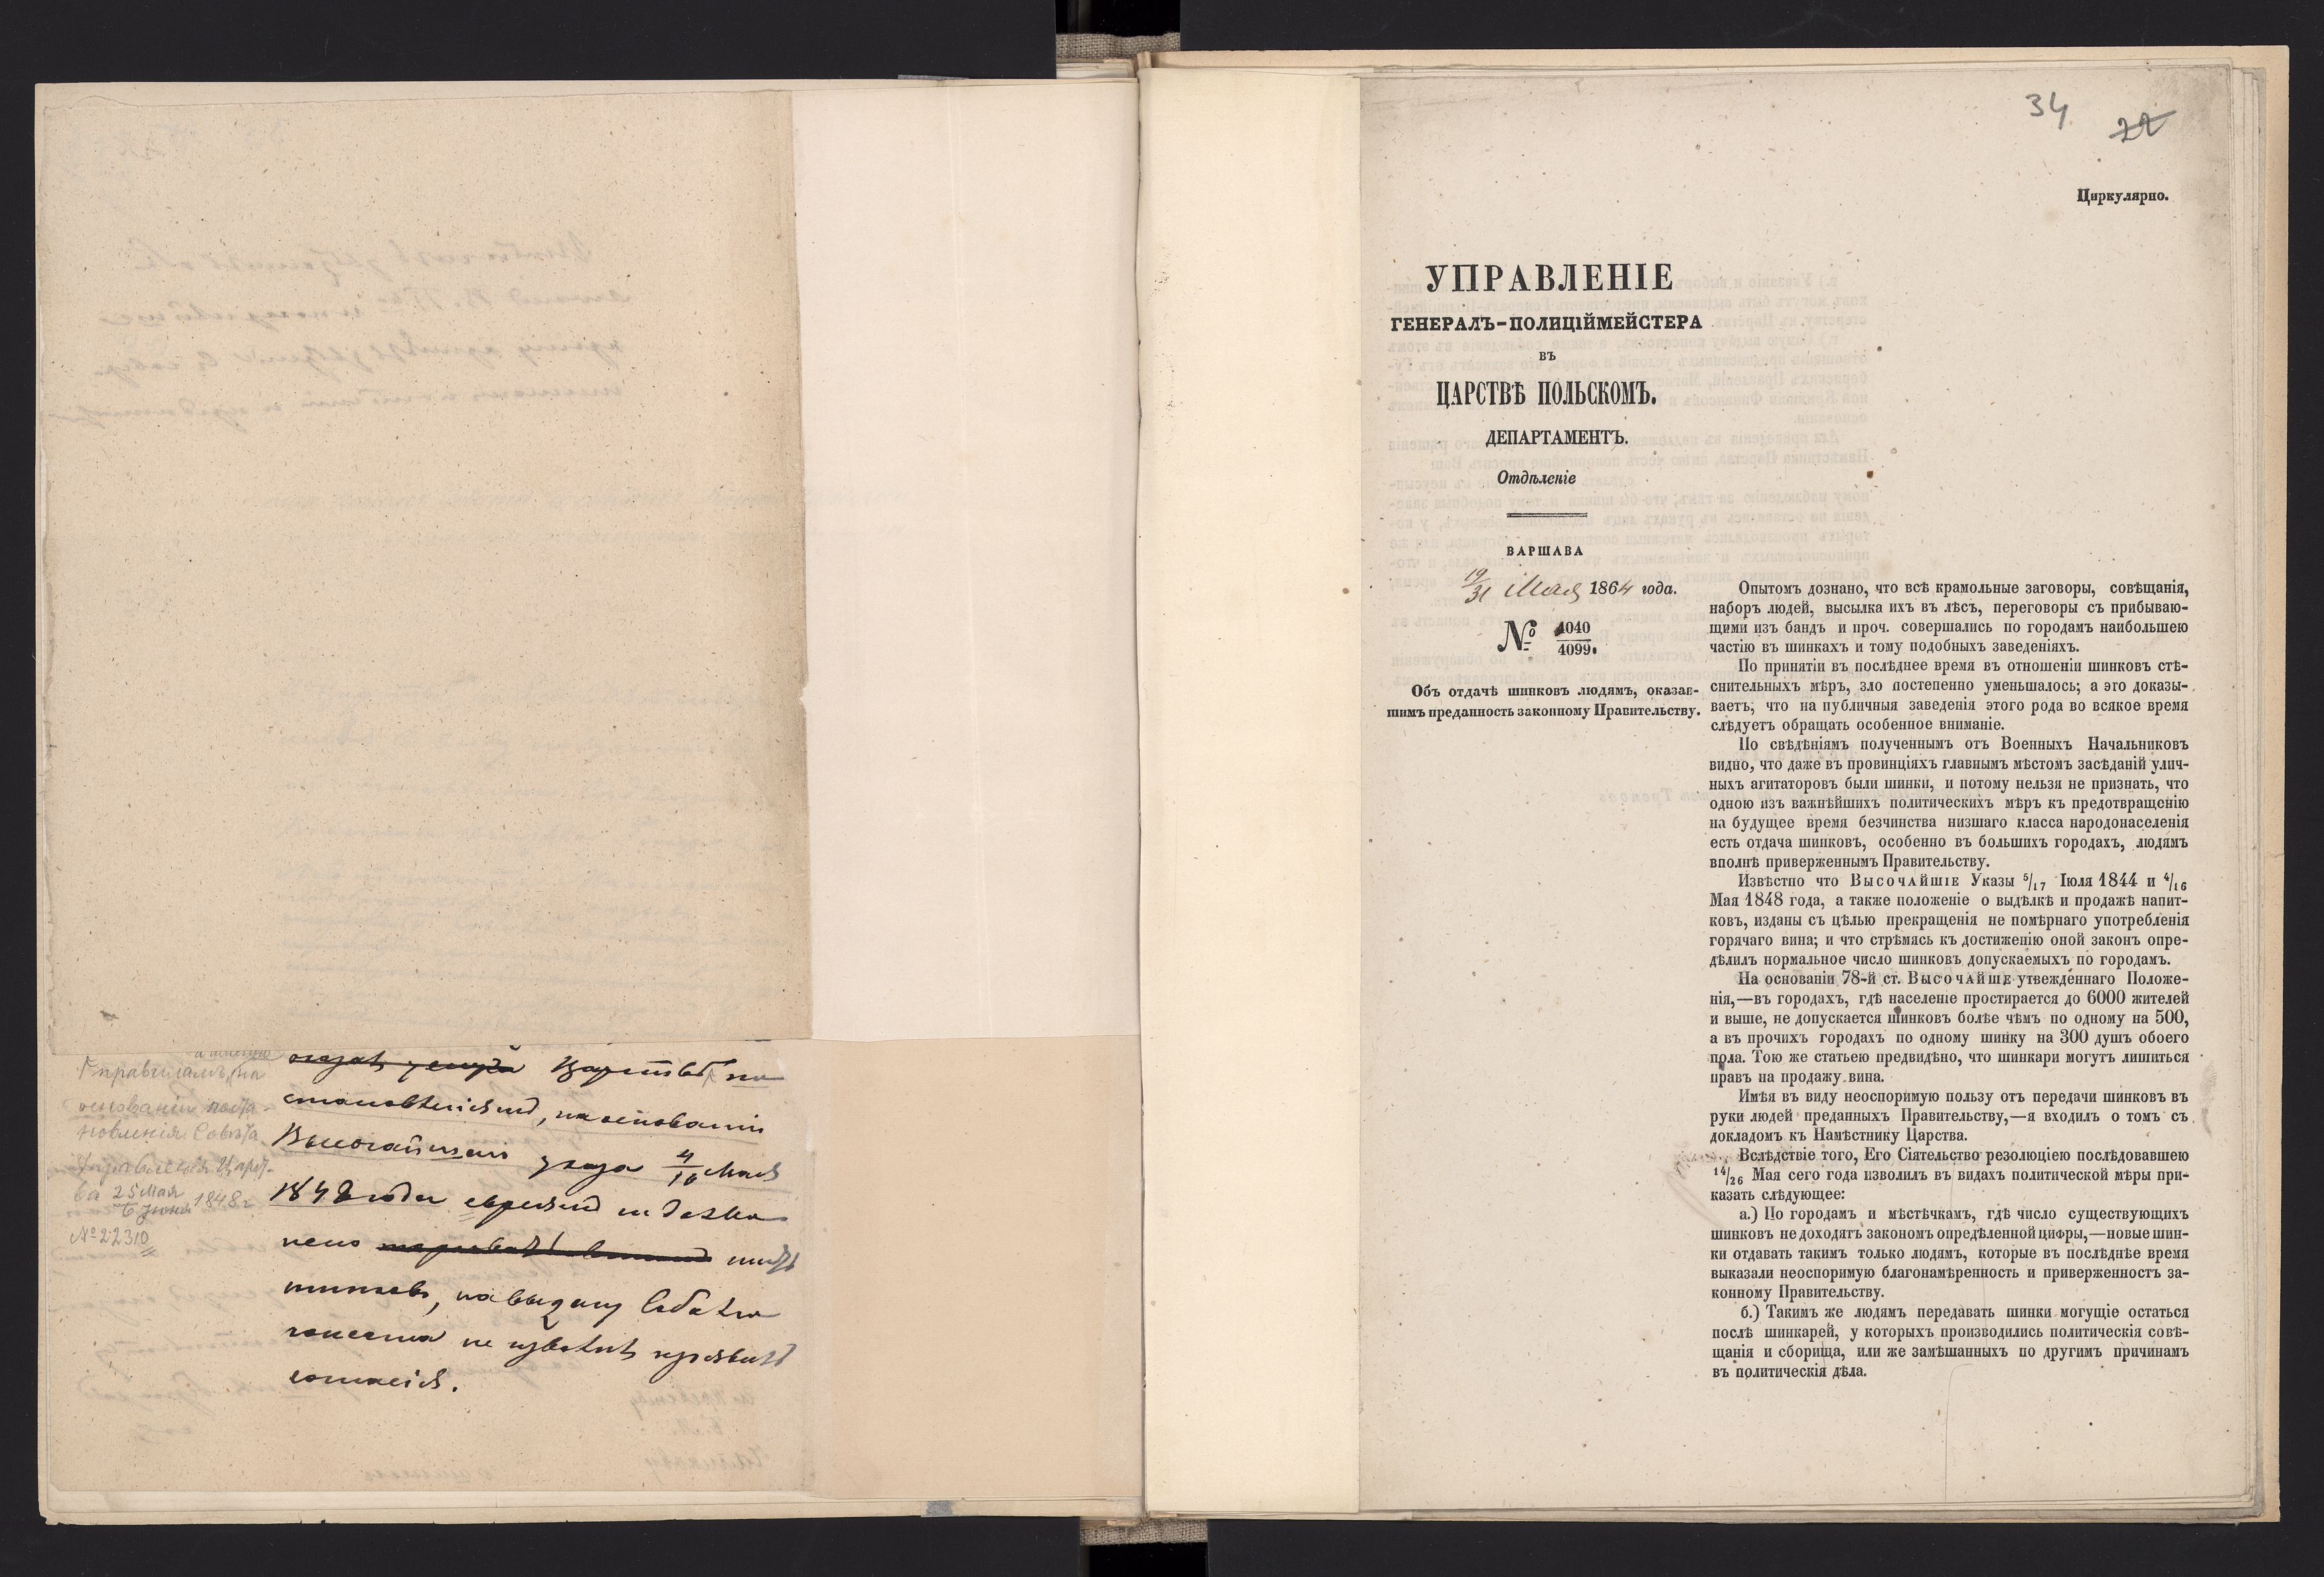 оказать услуги Царствѣ по
становленіямъ, на основаніи
Высочайшаго указа 4/16 Мая
1848 года евреямъ и дозво
шинковъ, на выдачу
не
согласія.
Управленія, на
основаніи поста-
новленія Совѣта
Управленія Царст-
ва 25 Мая/6 Июня 1848 г.
№ 22310
34
22
Циркулярно.
УПРАВЛЕНІЕ
ГЕНЕРАЛЪ-ПОЛИЦІЙМЕЙСТЕРА
ВЪ
ЦАРСТВѢ ПОЛЬСКОМЪ.
ДЕПАРТАМЕНТЪ.
Отдѣленіе
ВАРШАВА
19/31 Мая 1864 года.
№ 4040/4099.
Объ отдачѣ шинковъ людямъ, оказав-
шимъ преданность законному Правительству.
Опытомъ дознано, что всѣ крамольные заговоры, совѣщанія,
наборъ людей, высылка ихъ въ лѣсъ, переговоры съ прибываю-
щими изъ бандъ и проч. совершались по городамъ наибольшею
частію въ шинкахъ и тому подобныхъ заведеніяхъ.
По принятіи въ послѣднее время въ отношеніи шинковъ стѣ-
снительныхъ мѣръ, зло постепенно уменьшалось; а это доказы-
ваетъ, что на публичныя заведенія этого рода во всякое время
слѣдуетъ обращать особенное вниманіе.
По свѣдѣніямъ полученнымъ отъ Военныхъ Начальниковъ
видно, что даже въ провинціяхъ главнымъ мѣстомъ засѣданій улич-
ныхъ агитаторовъ были шинки, и потому нельзя не признать, что
одною изъ важнѣйшихъ политическихъ мѣръ къ предотвращенію
на будущее время безчинства низшаго класса народонаселенія
есть отдача шинковъ, особенно въ большихъ городахъ, людямъ
вполнѣ приверженнымъ Правительству.
Извѣстно что Высочайшіе Указы 5/17 Іюля 1844 и 4/16
Мая 1848 года, а также положеніе о выдѣлкѣ и продажѣ напит-
ковъ, изданы съ цѣлью прекращенія не помѣрнаго употребленія
горячаго вина; и что стрѣмясь къ достиженію оной законъ опре-
дѣлилъ нормальное число шинковъ допускаемыхъ по городамъ.
На основаніи 78-й ст. Высочайше утвежденнаго Положе-
нія,—въ городахъ, гдѣ населеніе простирается до 6000 жителей
и выше, не допускается шинковъ болѣе чѣмъ по одному на 500,
а въ прочихъ городахъ по одному шинку на 300 душъ обоего
пола. Тою же статьею предвидѣно, что шинкари могутъ лишиться
правъ на продажу вина.
Имѣя въ виду неоспоримую пользу отъ передачи шинковъ въ
руки людей преданныхъ Правительству,—я входилъ о томъ съ
докладомъ къ Намѣстнику Царства.
Вслѣдствіе того, Его Сіятельство резолюціею послѣдовавшею
14/26 Мая сего года изволилъ въ видахъ политической мѣры при-
казать слѣдующее:
а.) По городамъ и мѣстѣчкамъ, гдѣ число существующихъ
шинковъ не доходятъ закономъ опредѣленной цифры,—новые шин-
ки отдавать такимъ только людямъ, которые въ послѣднѣе время
выказали неоспоримую благонамѣренность и приверженность за-
конному Правительству.
б.) Такимъ же людямъ передавать шинки могущіе остаться
послѣ шинкарей, у которыхъ производились политическія совѣ-
щанія и сборища, или же замѣшанныхъ по другимъ причинамъ
въ политическія дѣла.